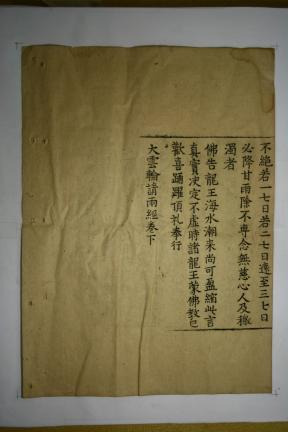 不絶若一七日若二七日遠至三七日
必降甘雨除不專念無慈心人及穢
濁者
佛告龍王海水潮来尚可盈縮此言
真實決定不虚時諸龍王蒙佛教已
歡喜踊躍頂礼奉行
大雲輪請雨經卷下